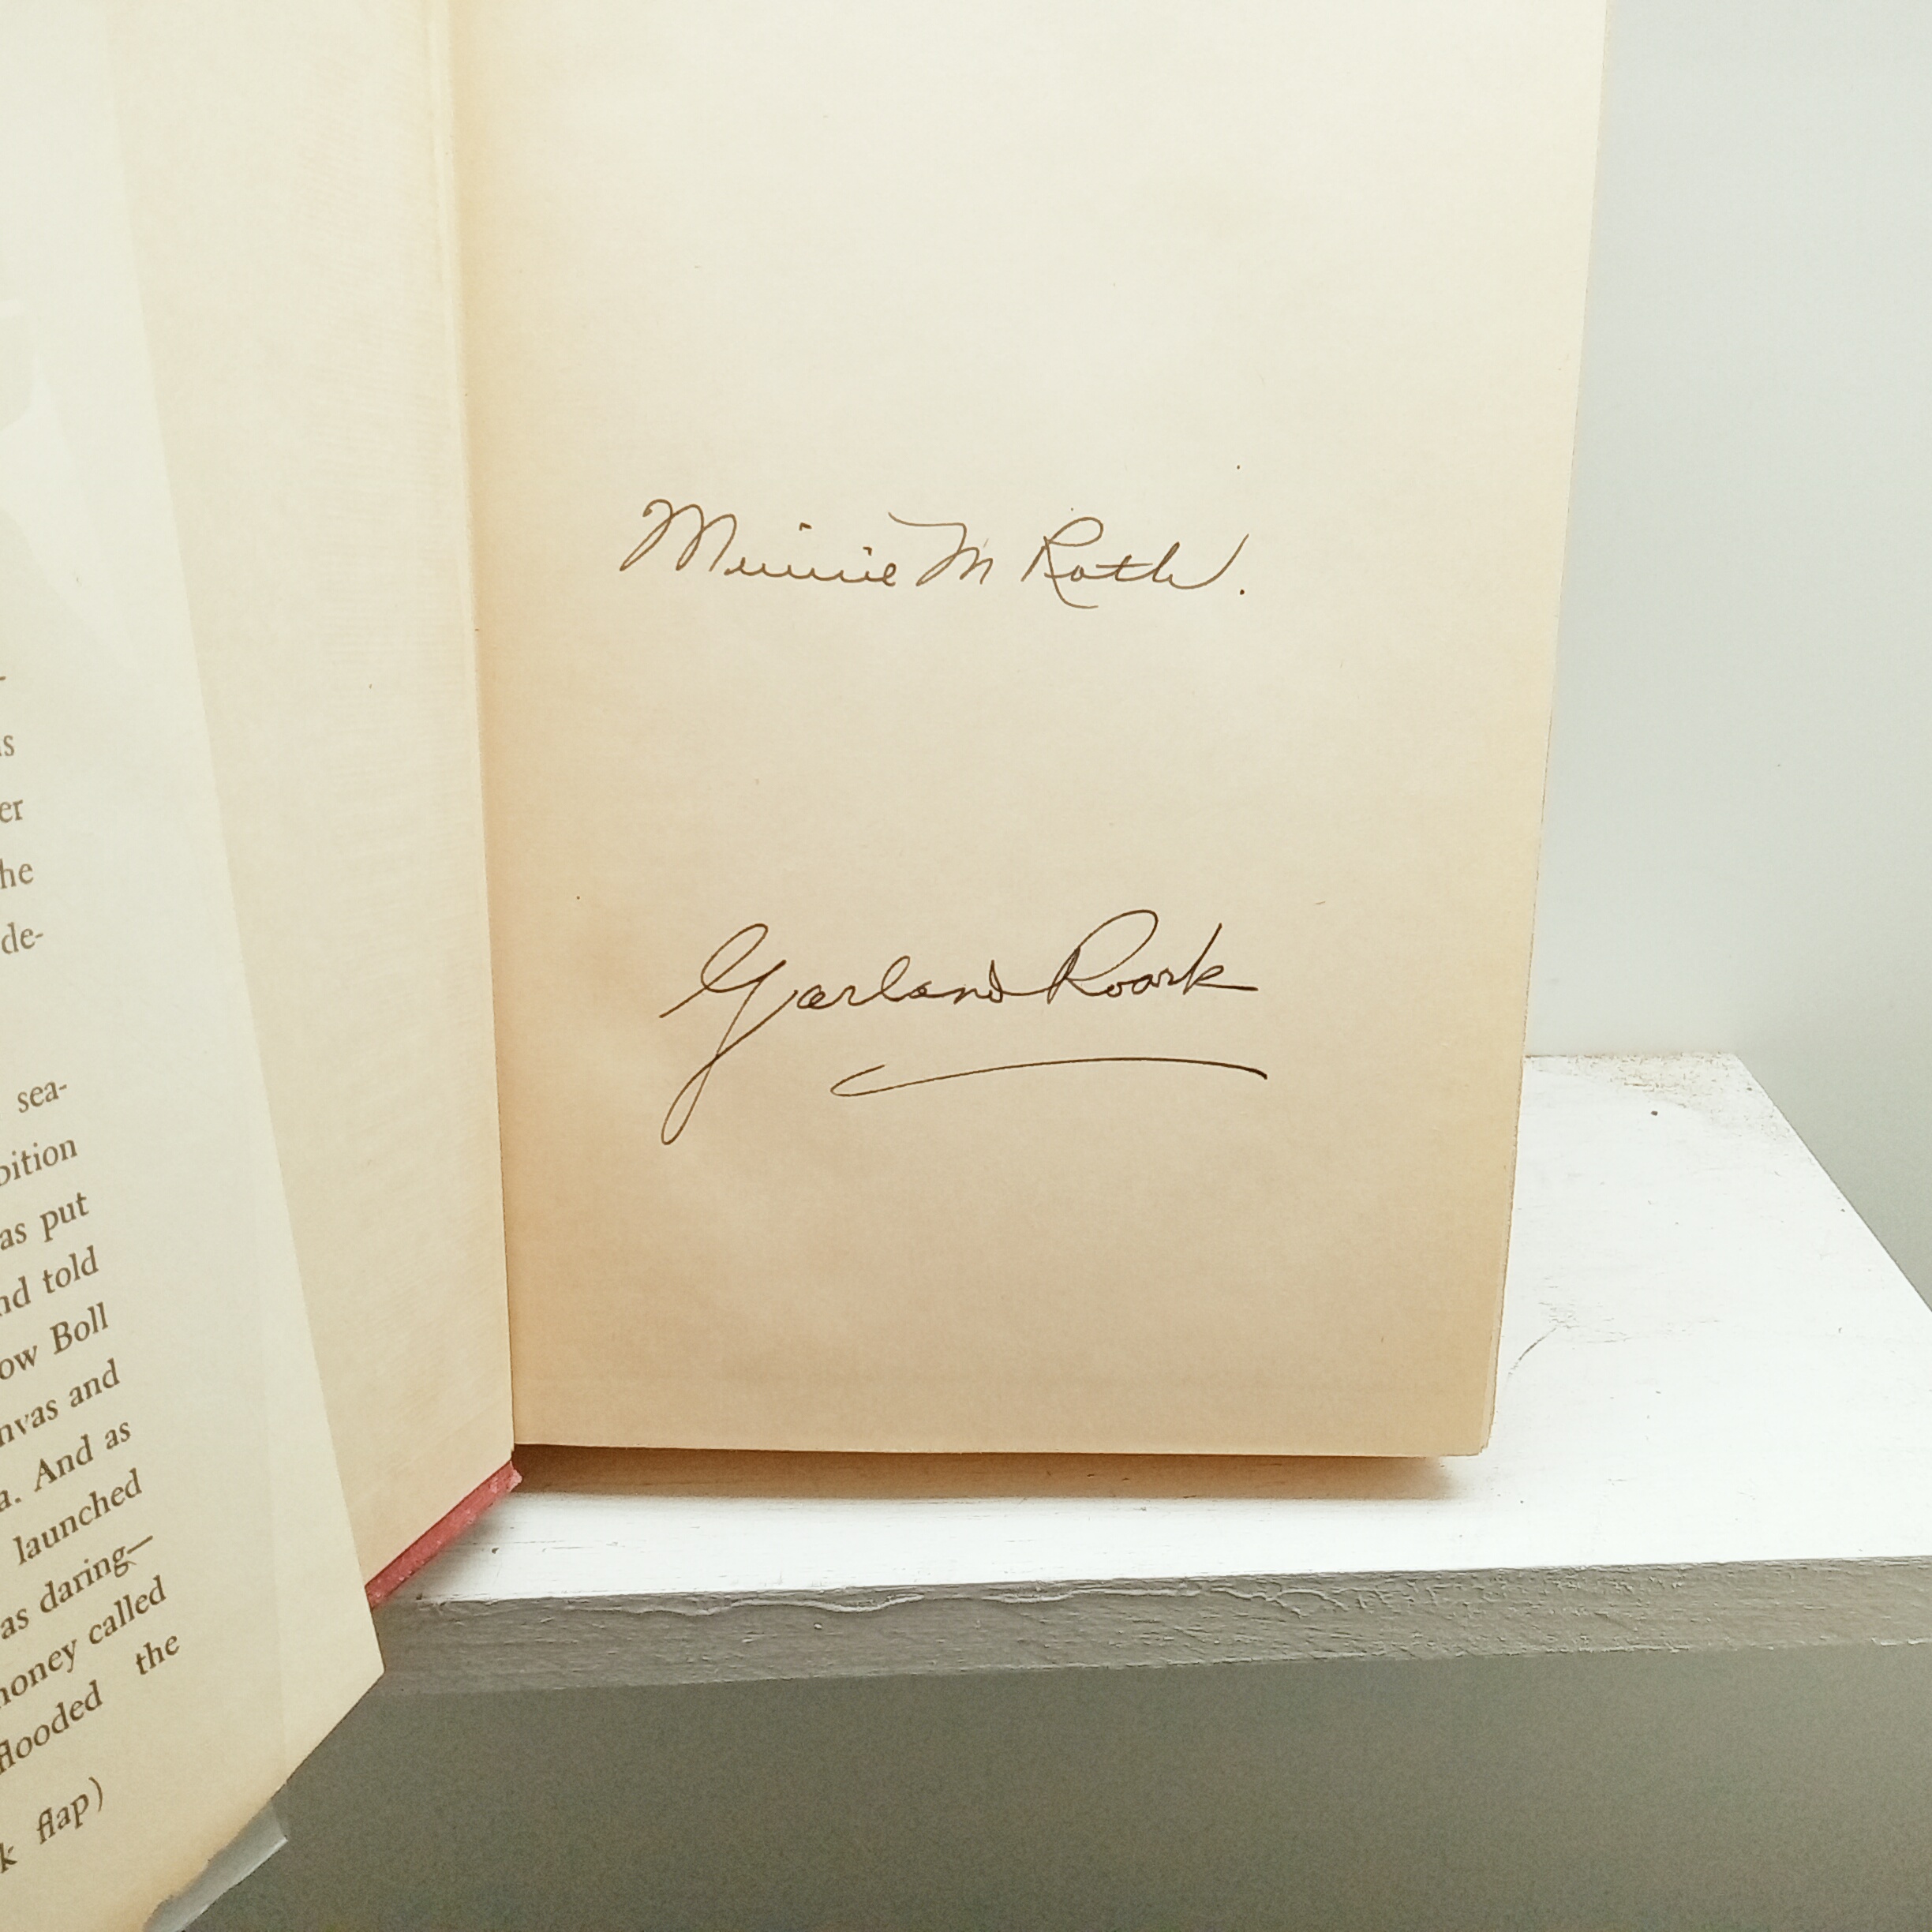 er
he
de-
sea-
bition
as put
nd told
ow Boll
nvas and
a. And as
launched
as daring—
money called
flooded the
k flap)
Minnie M Roth.
Garland Roark